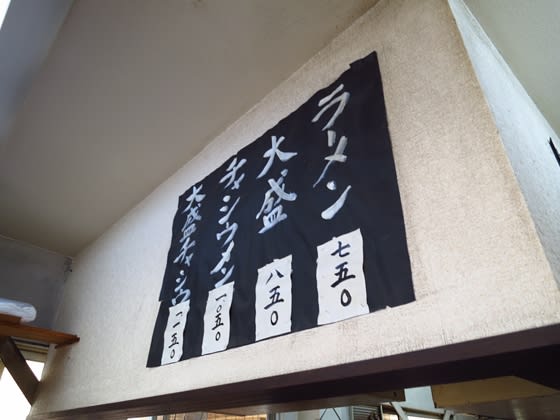 ラーメン
七五〇
大盛
八五〇
チャシウメン
一〇五〇
大盛チャシウ
一一五〇